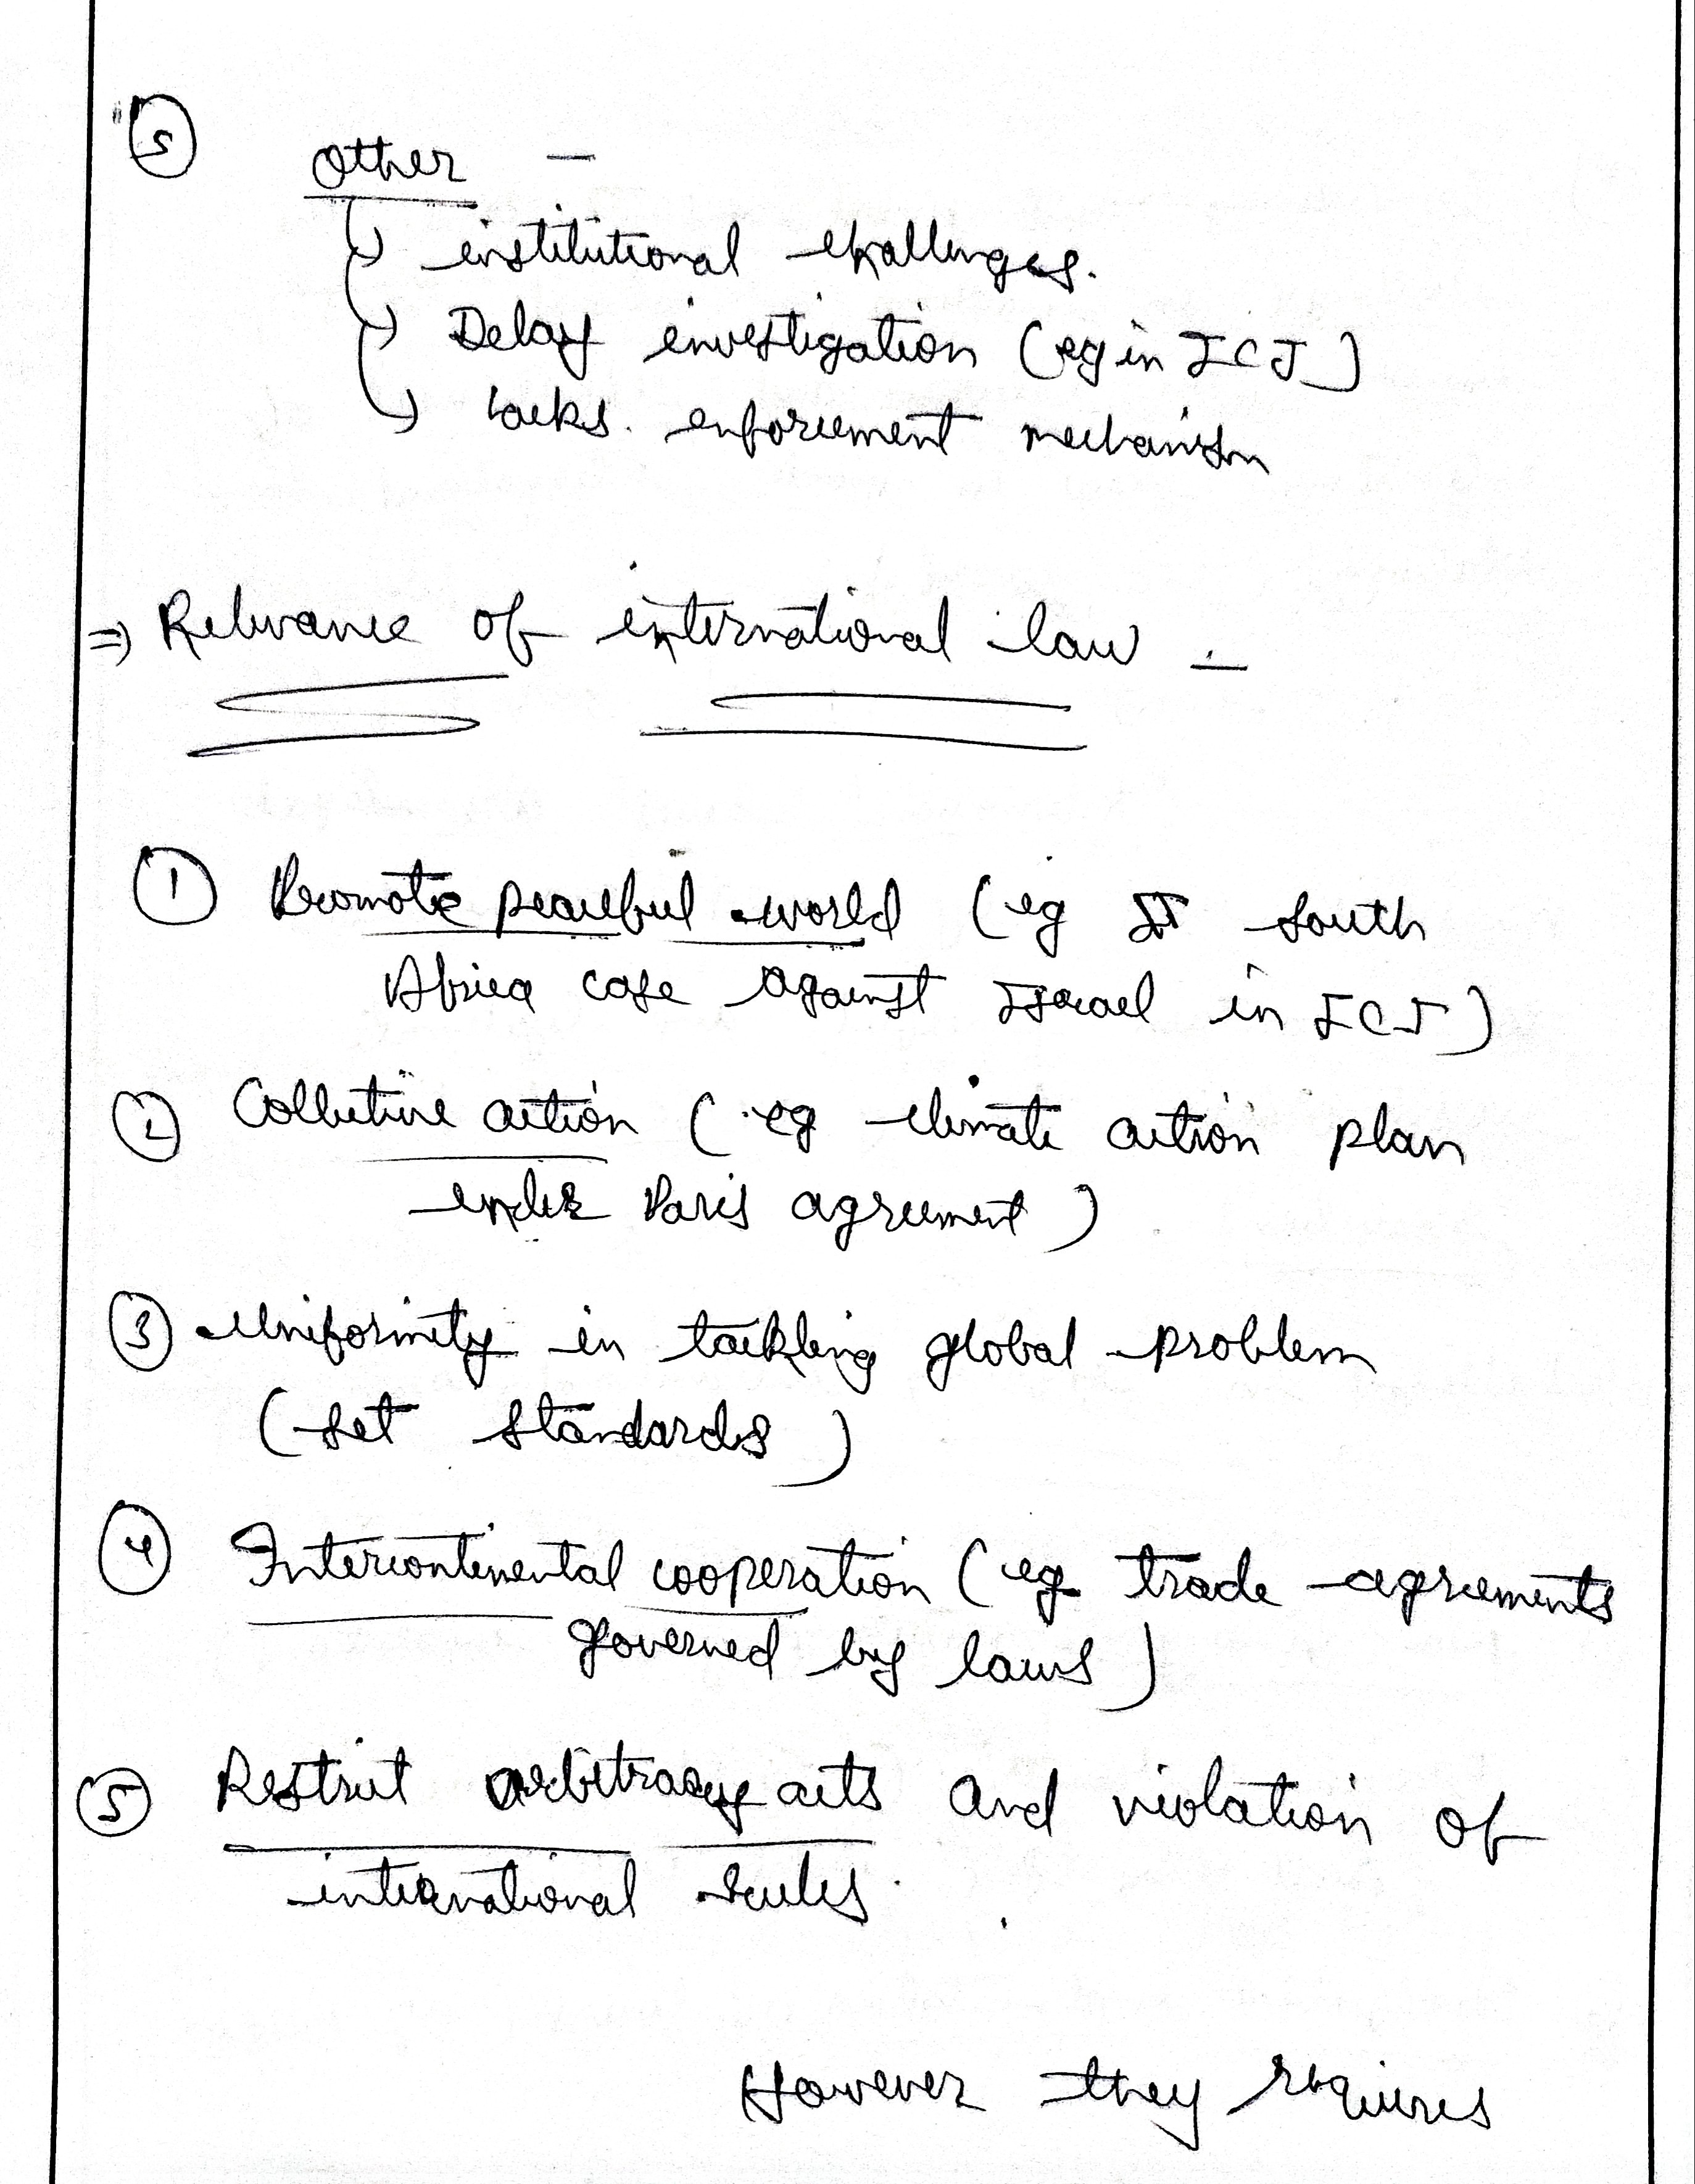 5
Other -
institutional challenges.
Delay investigation (eg in ICJ)
lacks enforcement mechanism
⇒ Relevance of international law -
① Promote peaceful world (eg South
Africa case against Israel in ICJ)
② Collective action (eg climate action plan
under Paris agreement)
③ Uniformity in tackling global problem
(set standards)
④ Intercontinental cooperation (eg trade agreements
governed by laws)
⑤ Restrict arbitrary acts and violation of
international rules.
However they requires